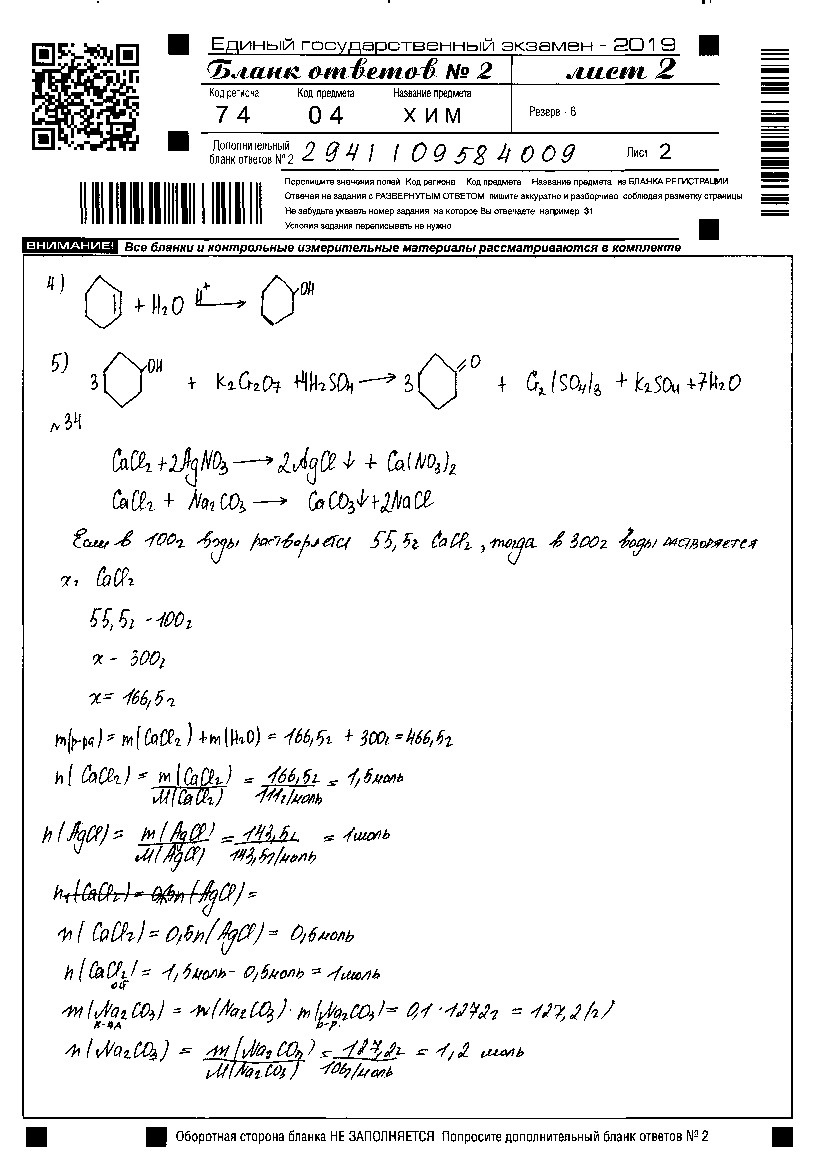 Единый государственный экзамен - 2019
Бланк ответов № 2 лист 2
Код региона Код предмета Название предмета
74 04 ХИМ Резерв - 6
Дополнительный бланк ответов № 2 2941109584009 Лист 2
Перепишите значения полей Код региона Код предмета Название предмета из БЛАНКА РЕГИСТРАЦИИ
Отвечая на задания с РАЗВЕРНУТЫМ ОТВЕТОМ пишите аккуратно и разборчиво соблюдая разметку страницы
Не забудьте указать номер задания на которое Вы отвечаете например 31
Условия задания переписывать не нужно
ВНИМАНИЕ! Все бланки и контрольные измерительные материалы рассматриваются в комплекте
4) + H2O H+ → OH
5) 3 OH + K2Cr2O7 +4H2SO4 → 3 O + Cr2(SO4)3 + K2SO4 +7H2O
№34
CaCl2 +2AgNO3 → 2AgCl↓ + Ca(NO3)2
CaCl2 + Na2CO3 → CaCO3↓+2NaCl
Если в 100г воды растворяется 55,5г CaCl2, тогда в 300г воды растворяется
xг CaCl2
55,5г - 100г
x - 300г
x= 166,5г
m(р-ра) = m(CaCl2) +m(H2O) = 166,5г + 300г = 466,5г
n(CaCl2) = m(CaCl2)/M(CaCl2) = 166,5г/111г/моль = 1,5моль
n(AgCl) = m(AgCl)/M(AgCl) = 143,5г/143,5г/моль = 1моль
n1(CaCl2) = 0,5n(AgCl) =
n(CaCl2) = 0,5n(AgCl) = 0,5моль
n(CaCl2 ост) = 1,5моль - 0,5моль = 1моль
m(Na2CO3) = w(Na2CO3) · m(Na2CO3 р-р.) = 0,1 · 1272г = 127,2(г)
n(Na2CO3) = m(Na2CO3)/M(Na2CO3) = 127,2г/106г/моль = 1,2 моль
Оборотная сторона бланка НЕ ЗАПОЛНЯЕТСЯ Попросите дополнительный бланк ответов № 2